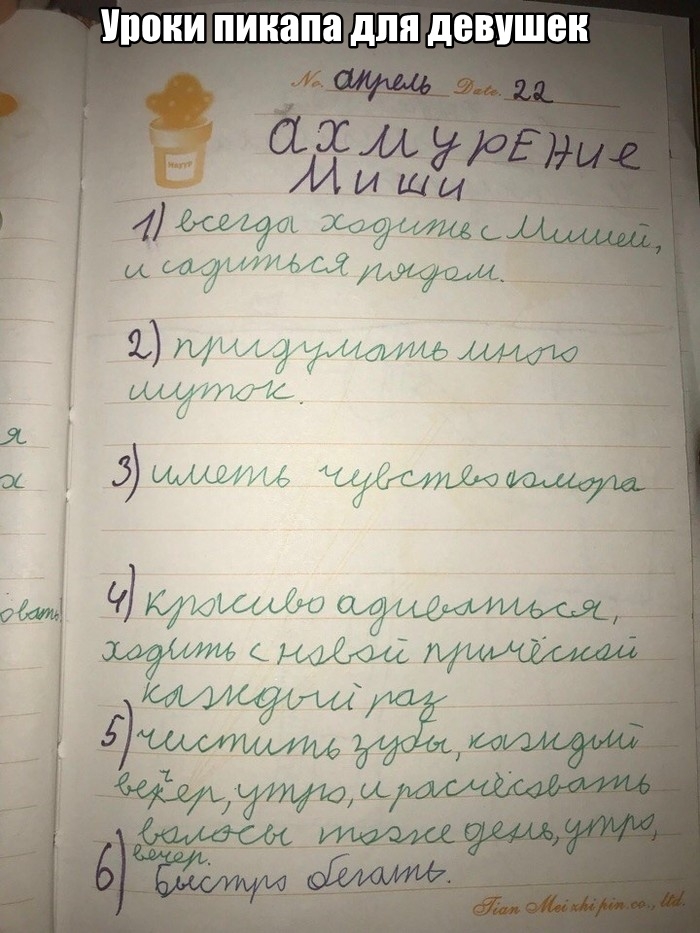 Уроки пикапа для девушек
No. апрель Date. 22
ахмурЕние
Миши
1) всегда ходить с Мишей,
и садиться рядом.
2) придумать много
шуток.
3) иметь чувство юмора
4) красиво адиваться,
ходить с новой причёской
каждый раз
5) чистить зубы, каждый
вечер, утро, и расчёсовать
волосы тоже день, утро,
вечер.
6) Быстро бегать.
я
х
овать
Tian Meizhipin.co., ltd.